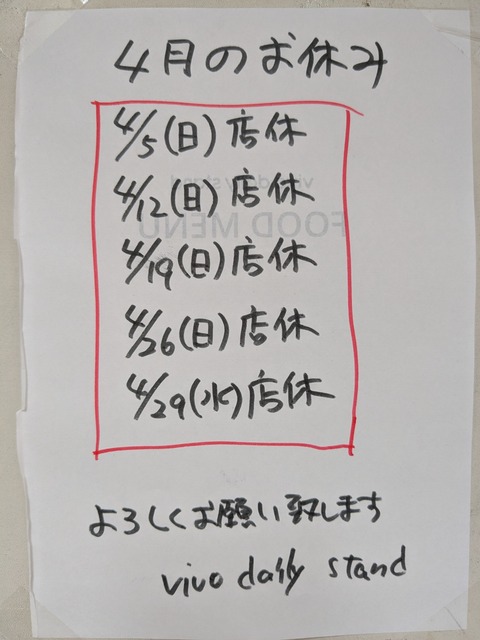 4月のお休み
4/5(日)店休
4/12(日)店休
4/19(日)店休
4/26(日)店休
4/29(水)店休
よろしくお願い致します
vivo daily stand
FOOD MENU